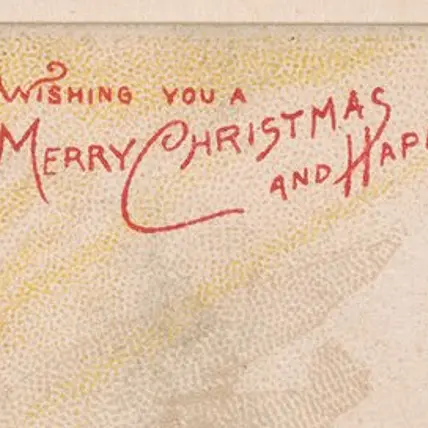 WISHING YOU A
MERRY CHRISTMAS
AND HAP